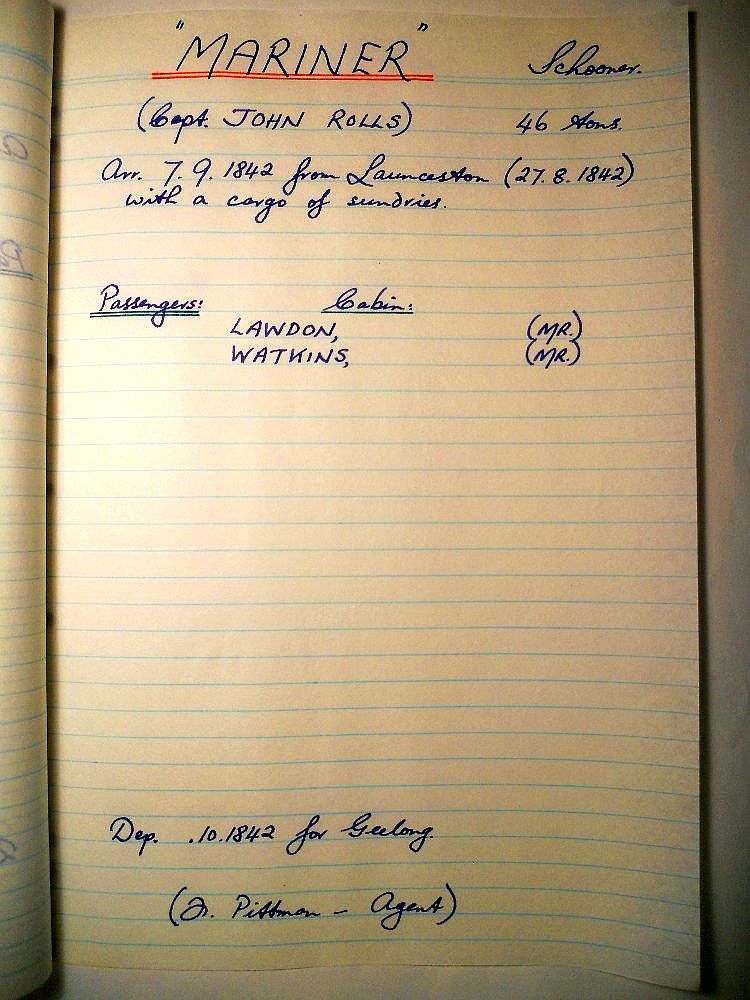 "MARINER" Schooner.
(Capt. JOHN ROLLS) 46 tons.
Arr. 7.9.1842 from Launceston (27.8.1842)
with a cargo of sundries.
Passengers: Cabin:
LAWDON, (MR.)
WATKINS, (MR.)
Dep. .10.1842 for Geelong.
Pittman - Agent)